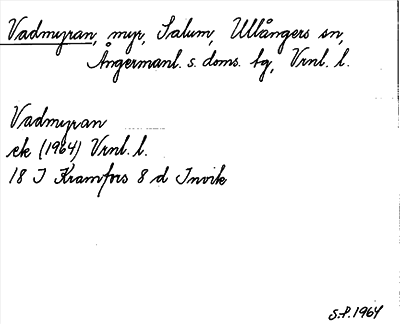 Vadmyran, myr, Salum, Ullångers sn,
Ångermanl. s. doms. fg, Vrnl. l.
Vadmyran
ek (1964) Vrnl. l.
18 I Kramfors 8 d Invik
S.P. 1964